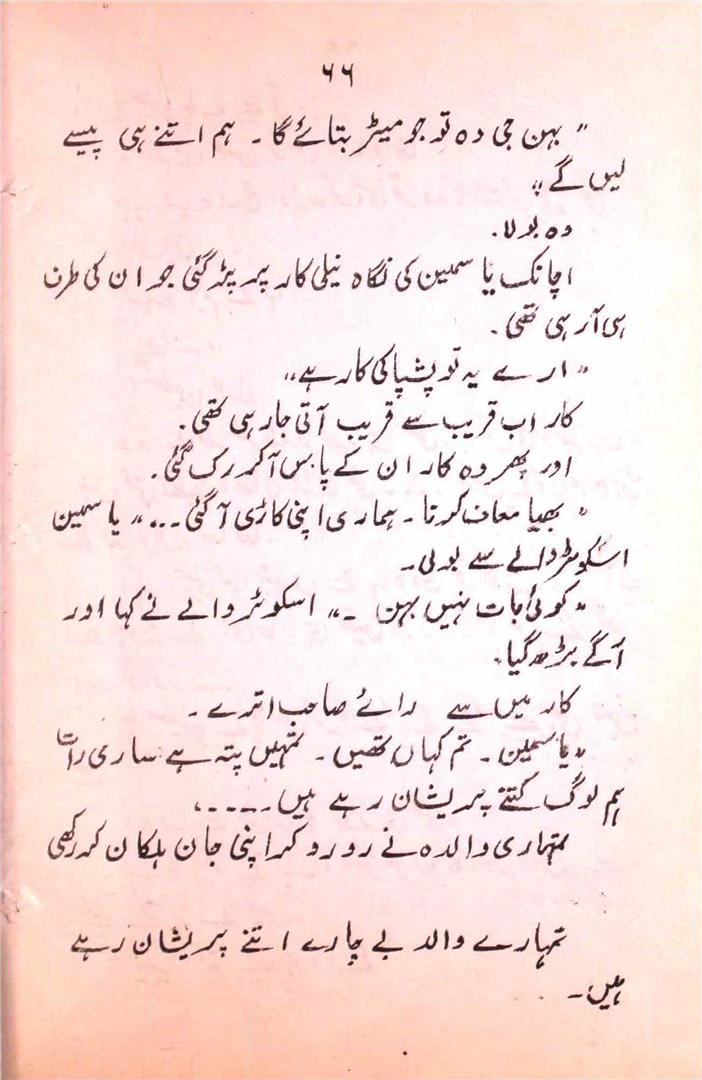 ۶۶
" بہن جی وہ تو جو میٹر بتائے گا ۔ ہم اتنے ہی پیسے
لیں گے "
وہ بولا.
اچانک یاسمین کی نگاہ نیلی کار پر پڑ گئی جو ان کی طرف
ہی آرہی تھی.
" ارے یہ تو پشپا کی کار ہے "
کار اب قریب سے قریب آتی جارہی تھی.
اور پھر وہ کار ان کے پاس آکر رک گئی.
" بھیا معاف کرنا ۔ ہماری اپنی کاڑی آگئی ... " یاسمین
اسکوٹر والے سے بولی ۔
" کوئی بات نہیں بہن ۔ " اسکوٹر والے نے کہا اور
آگے بڑھ گیا.
کار میں سے رائے صاحب اترے ۔
" یاسمین ۔ تم کہاں تھیں ۔ تمہیں پتہ ہے ساری رات
ہم لوگ کتنے پریشان رہے ہیں ۔۔۔۔ ،
تمہاری والدہ نے رو رو کر اپنی جان ہلکان کر رکھی
تمہارے والد بے چارے اتنے پریشان رہے
ہیں ۔